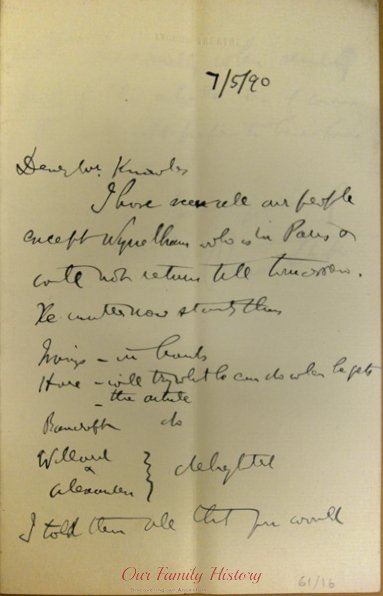 7/5/90
Dear Mr. Knowles
I have seen all our people
except Wyndham who is in Paris &
will not return till tomorrow.
The matter now stands thus
Irving – in
Hare – will try what he can do when he gets
– the article
Bancroft do
Willard
&
Alexander } delighted
I told them all that you would
Our Family History
Discovering our Ancestors
61/16